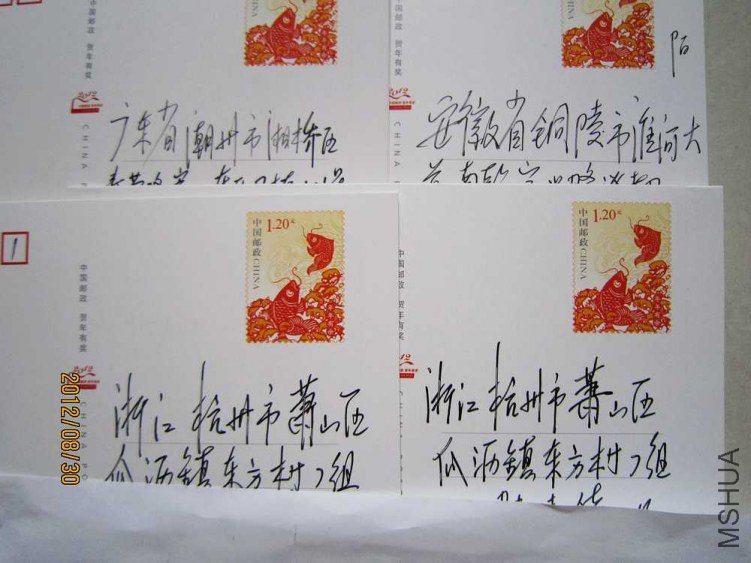 中国邮政 贺年有奖
2012
CHINA P
广东省潮州市湘桥区
中国邮政 贺年有奖
2012
陌
安徽省铜陵市淮河大
1
中国邮政 贺年有奖
2012
CHINA PO
中国邮政 CHINA
1.20元
浙江杭州市萧山区
瓜沥镇东方村7组
中国邮政 贺年有奖
中国邮政 CHINA
1.20元
浙江杭州市萧山区
瓜沥镇东方村7组
2012/08/30
MSHUA